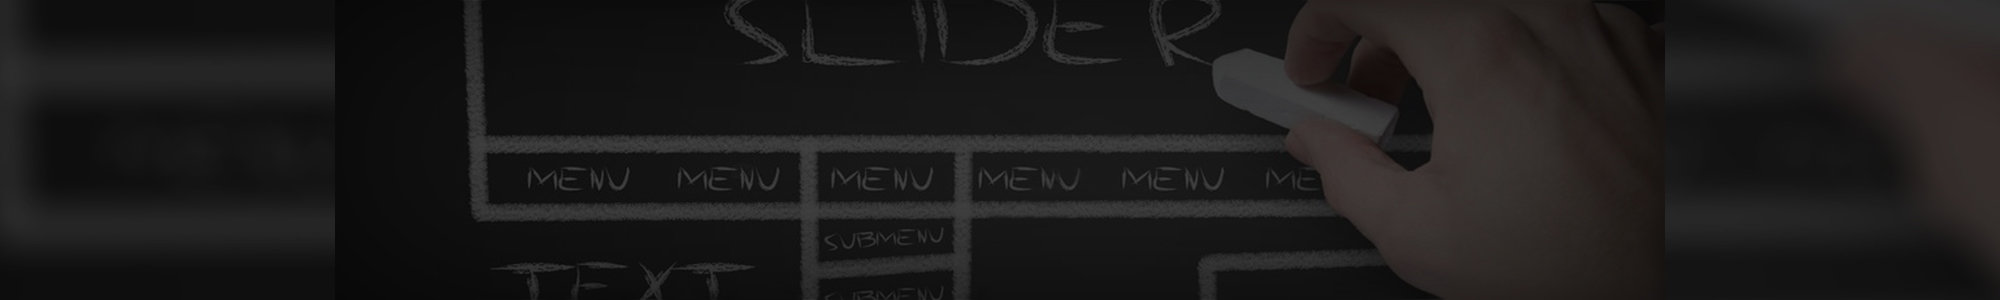 SLIDER
MENU MENU MENU MENU MENU ME
SUBMENU
TEXT
SUBMENU